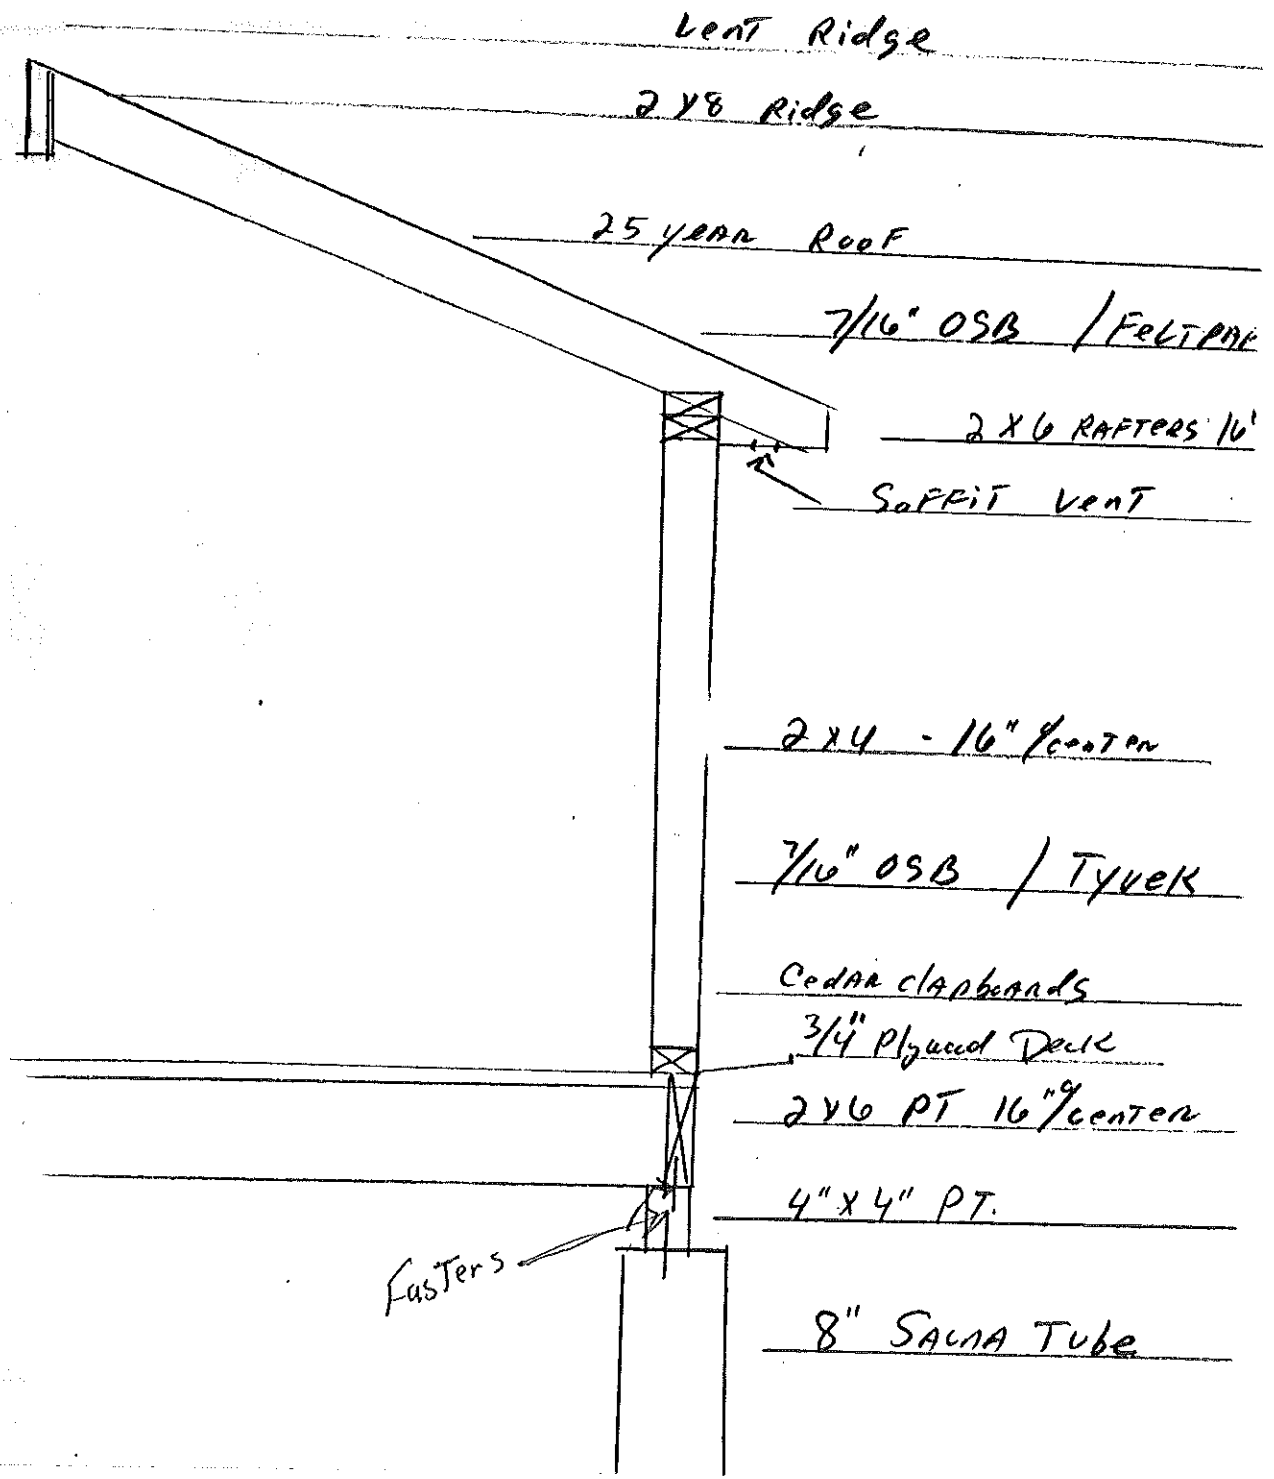 Vent Ridge
2 x 8 Ridge
25 year Roof
7/16" OSB / FeLTPAP
2 x 6 RAFTERS 16'
SoFFiT VenT
2 x 4 - 16" o/cenTer
7/16" OSB / Tyvek
Cedar clapboards
3/4" Plywood Deck
2 x 6 PT 16" o/cenTer
4" x 4" PT.
FasTers
8" SAuNA Tube